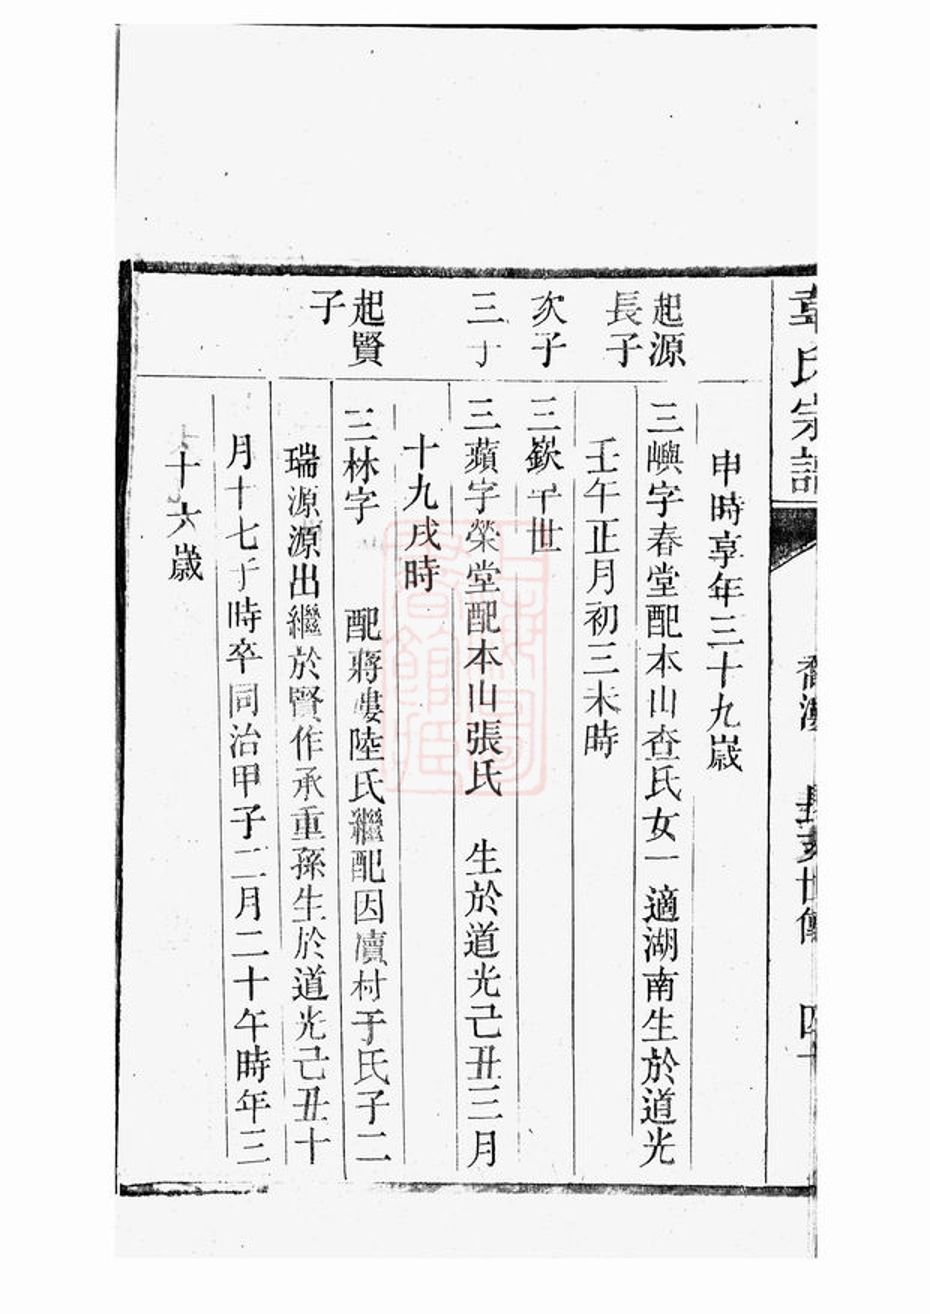 韋氏宗譜
喬溪
長亥世傳
四十
申時享年三十九歲
起源
長子
三嶼字春堂配本山查氏女一適湖南生於道光
壬午正月初三未時
次子
三嶔早世
三子
三蘋字榮堂配本山張氏 生於道光己丑三月
十九戌時
起賢
子
三林字 配蔣嶁陸氏繼配因瀆村于氏子二
瑞源源出繼於賢作承重孫生於道光己丑十
月十七子時卒同治甲子二月二十午時年三
十六歲